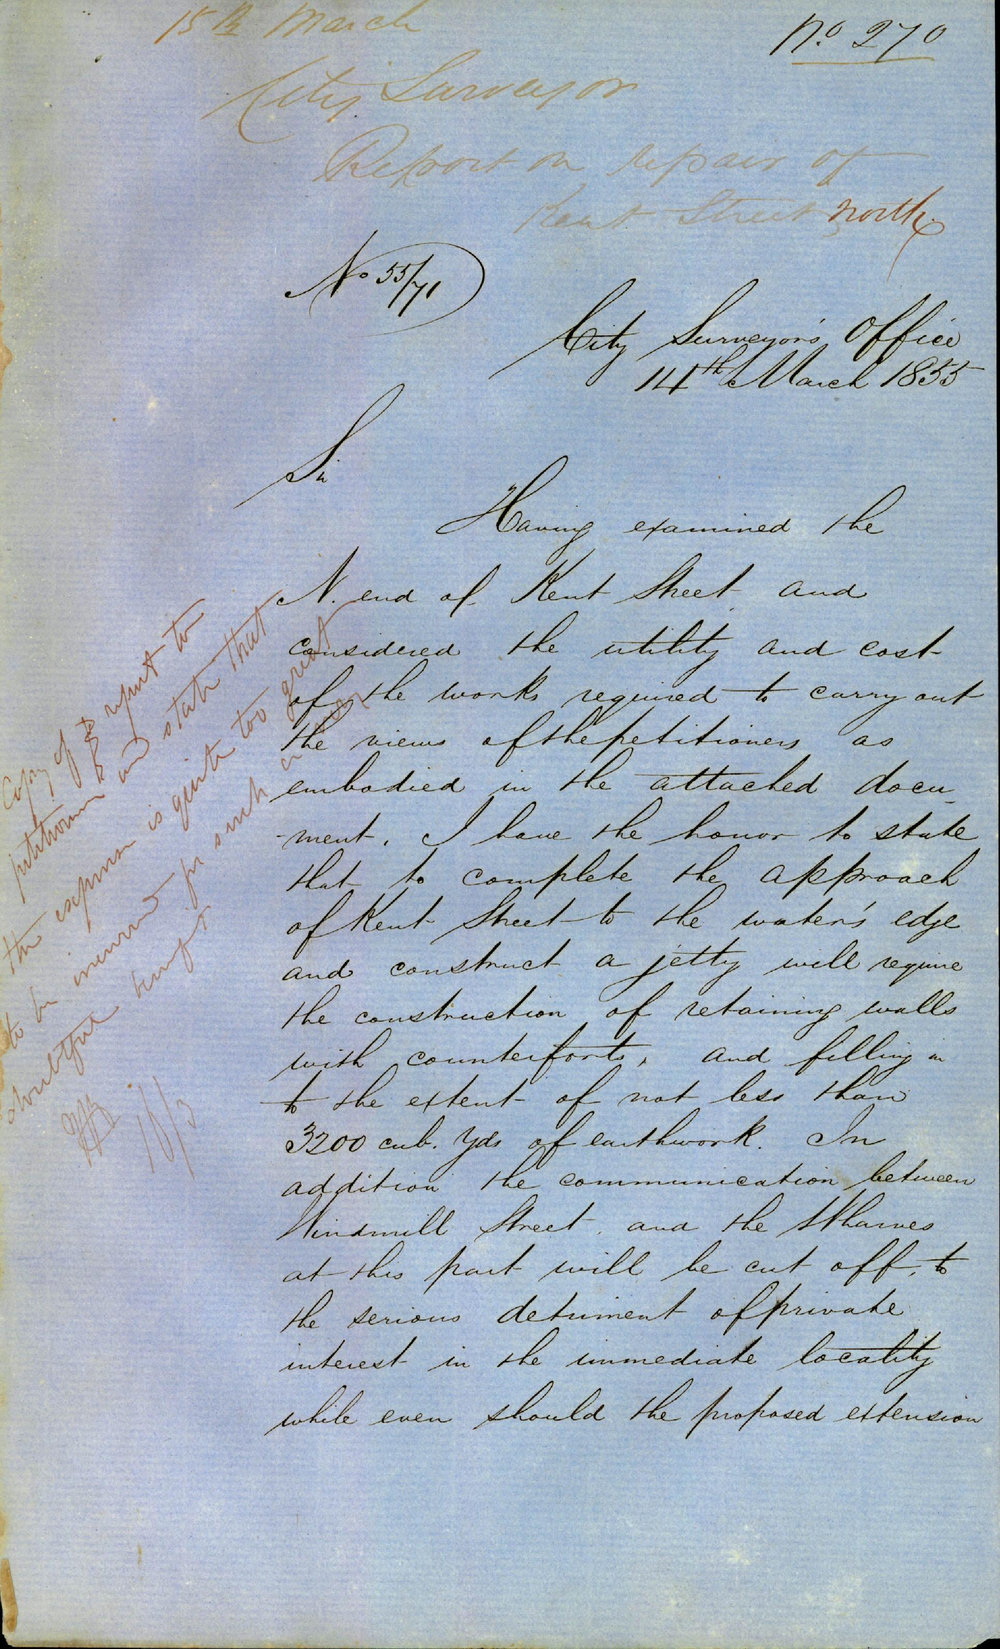 15th March
No 270
City Surveyor
Report on repairs of
Kent Street north
No 55/71
City Surveyor's Office
14th March 1855
Sir
Having examined the
N. end of Kent Street and
considered the utility and cost
of the works required to carry out
the views of the petitioners as
embodied in the attached docu-
-ment. I have the honor to state
that to complete the approach
of Kent Street to the water's edge
and construct a jetty will require
the construction of retaining walls
with counterforts, and filling in
to the extent of not less than
3200 cub. yds of earthwork. In
addition the communication between
Windmill Street and the Wharves
at this part will be cut off, to
the serious detriment of private
interest in the immediate locality
while even should the proposed extension
Copy of report to
petitioners and state that
the expense is quite too great
to be incurred for such a
doubtful benefit
16/3